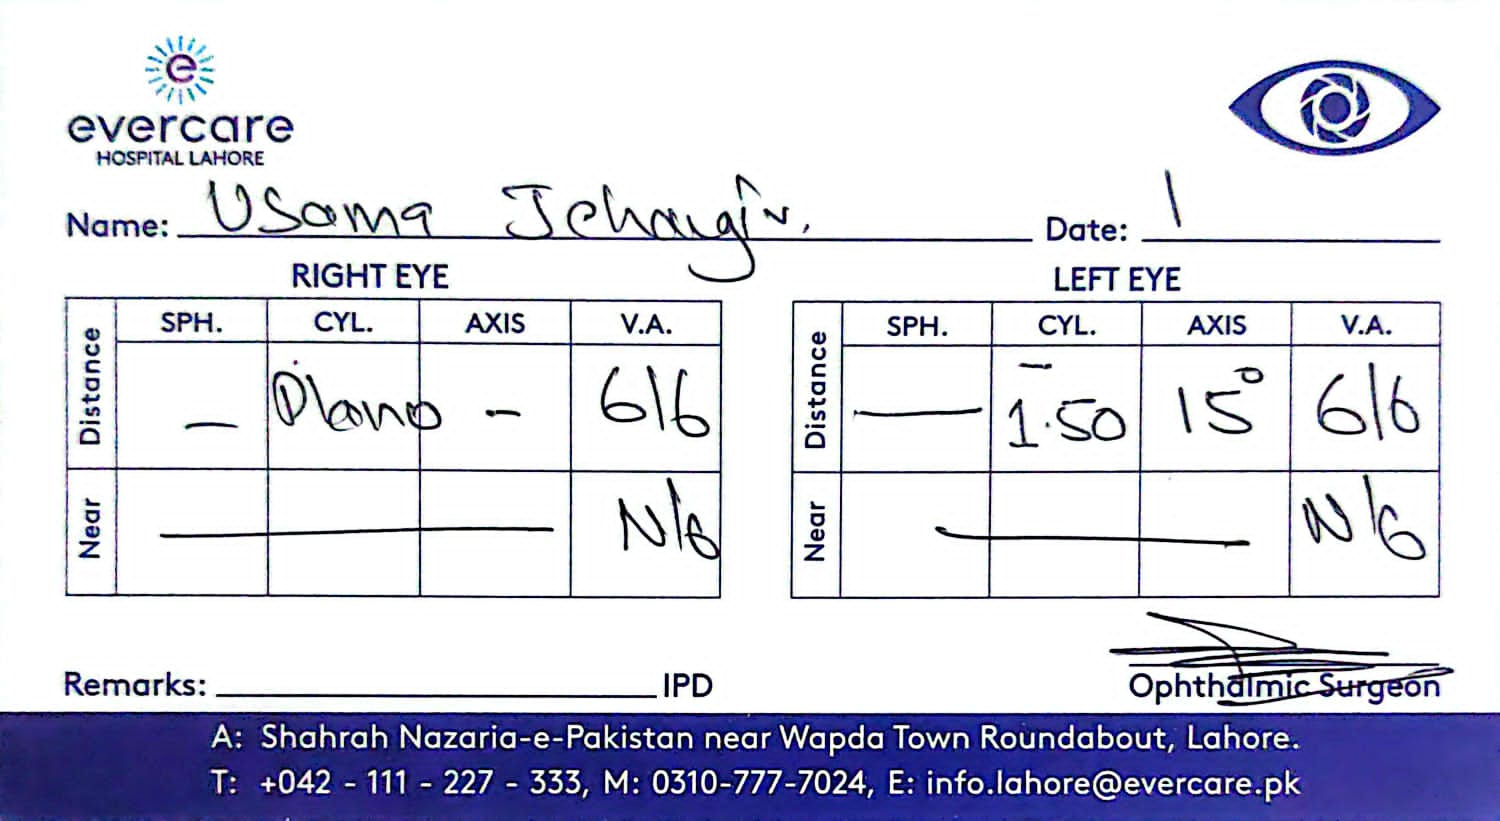 e
evercare
HOSPITAL LAHORE
Name: Usama Jehangir. Date: 1
RIGHT EYE LEFT EYE
SPH. CYL. AXIS V.A. SPH. CYL. AXIS V.A.
Distance — Plano - 6/6 Distance — -1.50 15° 6/6
Near — N/6 Near — N/6
Remarks: IPD Ophthalmic Surgeon
A: Shahrah Nazaria-e-Pakistan near Wapda Town Roundabout, Lahore.
T: +042 - 111 - 227 - 333, M: 0310-777-7024, E: info.lahore@evercare.pk